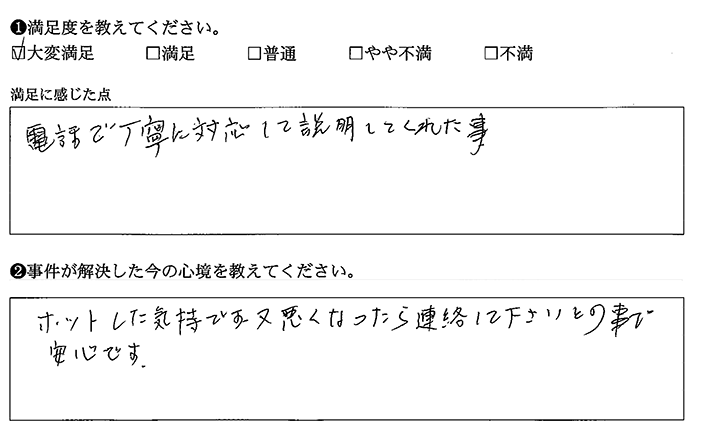 ❶満足度を教えてください。
☑大変満足 □満足 □普通 □やや不満 □不満
満足に感じた点
電話で丁寧に対応して説明してくれた事
❷事件が解決した今の心境を教えてください。
ホットした気持です又悪くなったら連絡して下さいとの事で
安心です.